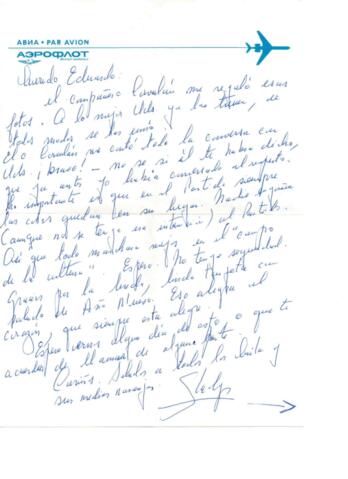 АВИА • PAR AVION
АЭРОФЛОТ
Querido Eduardo:
el compañero Corvalán me regaló esas
fotos. A lo mejor Uds ya las tienen, de
todos modos se las envío.
Corvalán me contó toda la conversa con
Uds. ¡bravo! — no se si él te había dicho,
que yo antes había conversado al respecto.
Lo importante es que en el Partido siempre
las cosas quedan en su lugar. Nadie engaña
(aunque no se tenga esa intención) al Partido.
Así que todo marchará mejor en el "campo
de la cultura". Espero. No tengo seguridad.
Gracias por la linda, linda tarjeta con
saludo de Año Nuevo. Eso alegra el
corazón, que siempre está alegre.
Espero vernos algún día de estos, o que te
acuerdes de llamarme de alguna parte.
Cariños. Saludos a todos los
sus medios naranjas.